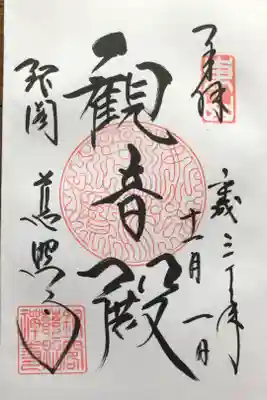 奉拝
平成三十年
十一月一日
観音殿
銀閣 慈照寺